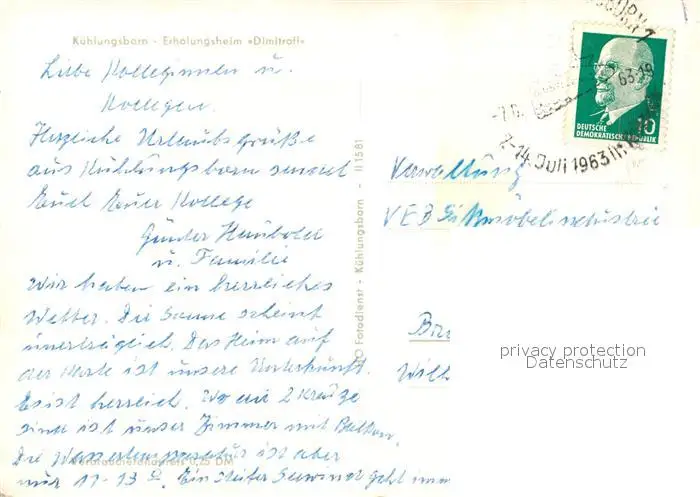 Kühlungsborn - Erholungsheim »Dimitroff«
Liebe Kolleginnen u.
Kollegen.
Herzliche Urlaubsgrüße
aus Kühlungsborn sendet
Euch Euer Kollege
Günter
u. Familie
Wir haben ein herrliches
Wetter. Die Sonne scheint
unerträglich. Das Heim auf
der Karte ist unsere Unterkunft.
Es ist herrlich. Wo die 2 Kreuze
sind ist unser Zimmer mit Balkon.
Die Wassertemperatur ist aber
nur 11-13 Ein steifer Seewind geht
Verbraucherendpreis 0,25 DM
Fotodienst - Kühlungsborn - II 1581
63-19
7.-14. Juli 1963
10
DEUTSCHE
DEMOKRATISCHE REPUBLIK
Verwaltung
VEB
privacy protection
Datenschutz